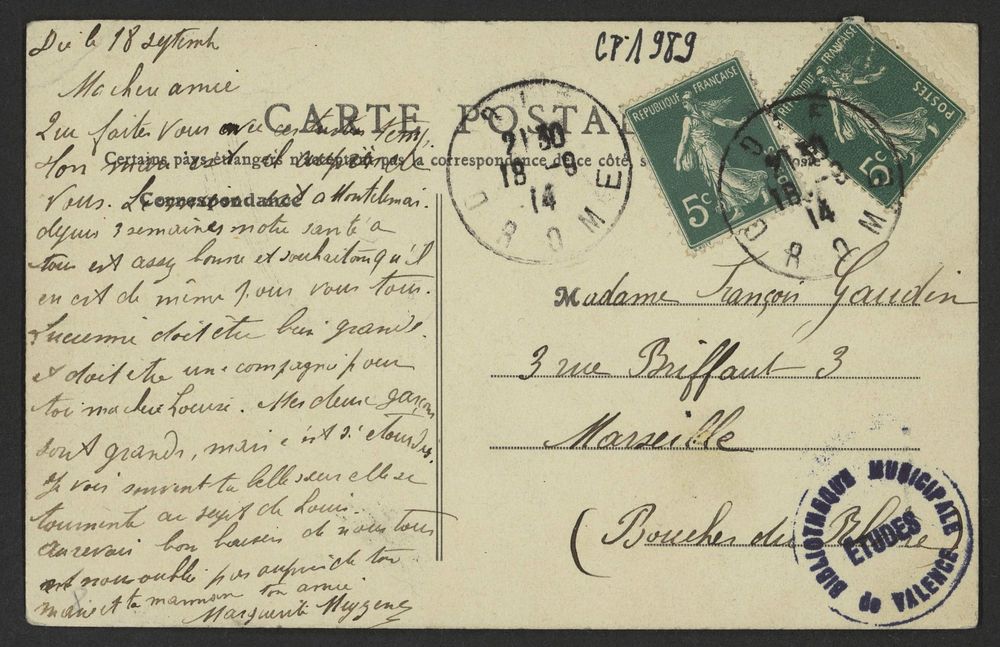 Die le 18 septemb
CP1989
Ma chère amie
CARTE POSTALE
Que faites vous avec ces temps
Certains pays étrangers n'acceptent pas la correspondance de ce côté
Mon mari est
Correspondance
vous. Le mien est a Montélimar
depuis 3 semaines notre santé a
tous est assez bonne et souhaiton qu'il
en est de même pour vous tous.
Lucienne doit etre bien grande
et doit etre une compagnie pour
toi ma chere Louise. Mes deux garçons
sont grands, mais c'est si etourdis.
Je vois souvent ta belle soeur elle se
tourmente au sujet de Louis.
aurevoir bon baisers de nous tous
et nous oublie pas auprès de ton
mari et ta maman ton amie
Marguerite
REPUBLIQUE FRANÇAISE
5c
REPUBLIQUE FRANÇAISE
POSTES
5c
DIE
21 30
18 -9
14
DROME
DIE
21 30
18 -9
14
DROME
Madame François Gaudin
3 rue Briffaut 3
Marseille
(Bouches du Rhône)
BIBLIOTHEQUE MUNICIPALE
ETUDES
de VALENCE